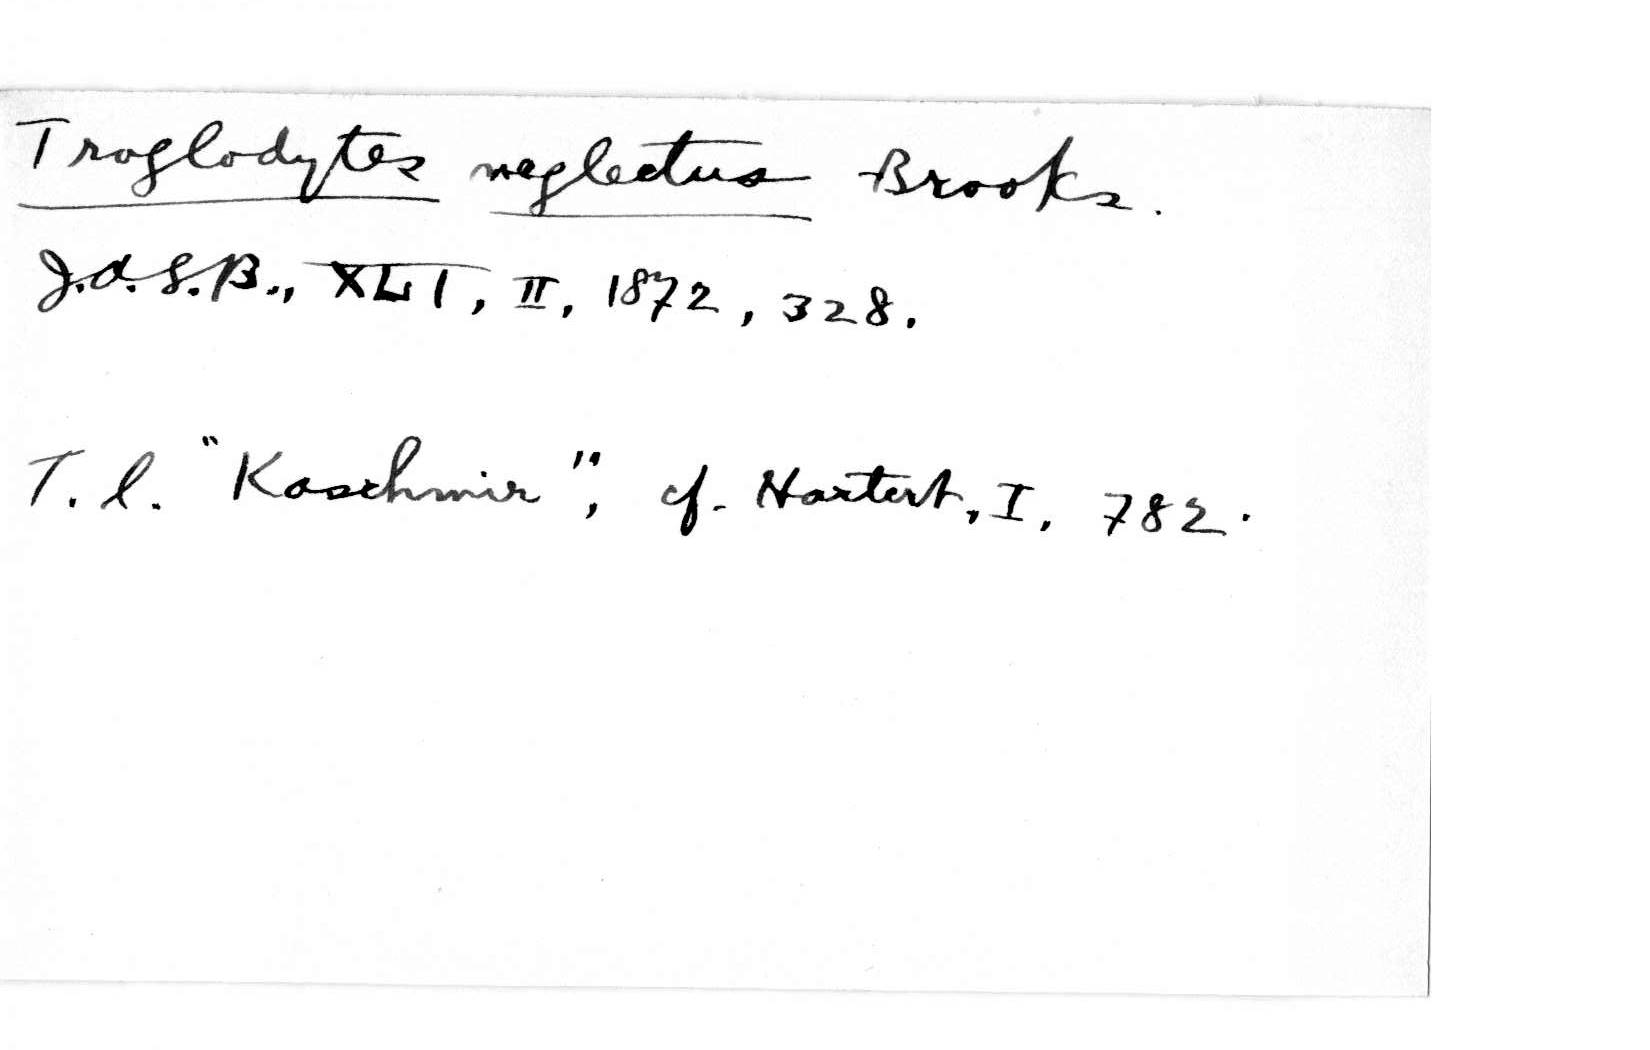 Troglodytes neglectus Brooks.
J.A.S.B., XLI, II, 1872, 328.
T. l. "Kaschmir", cf. Hartert, I, 782.